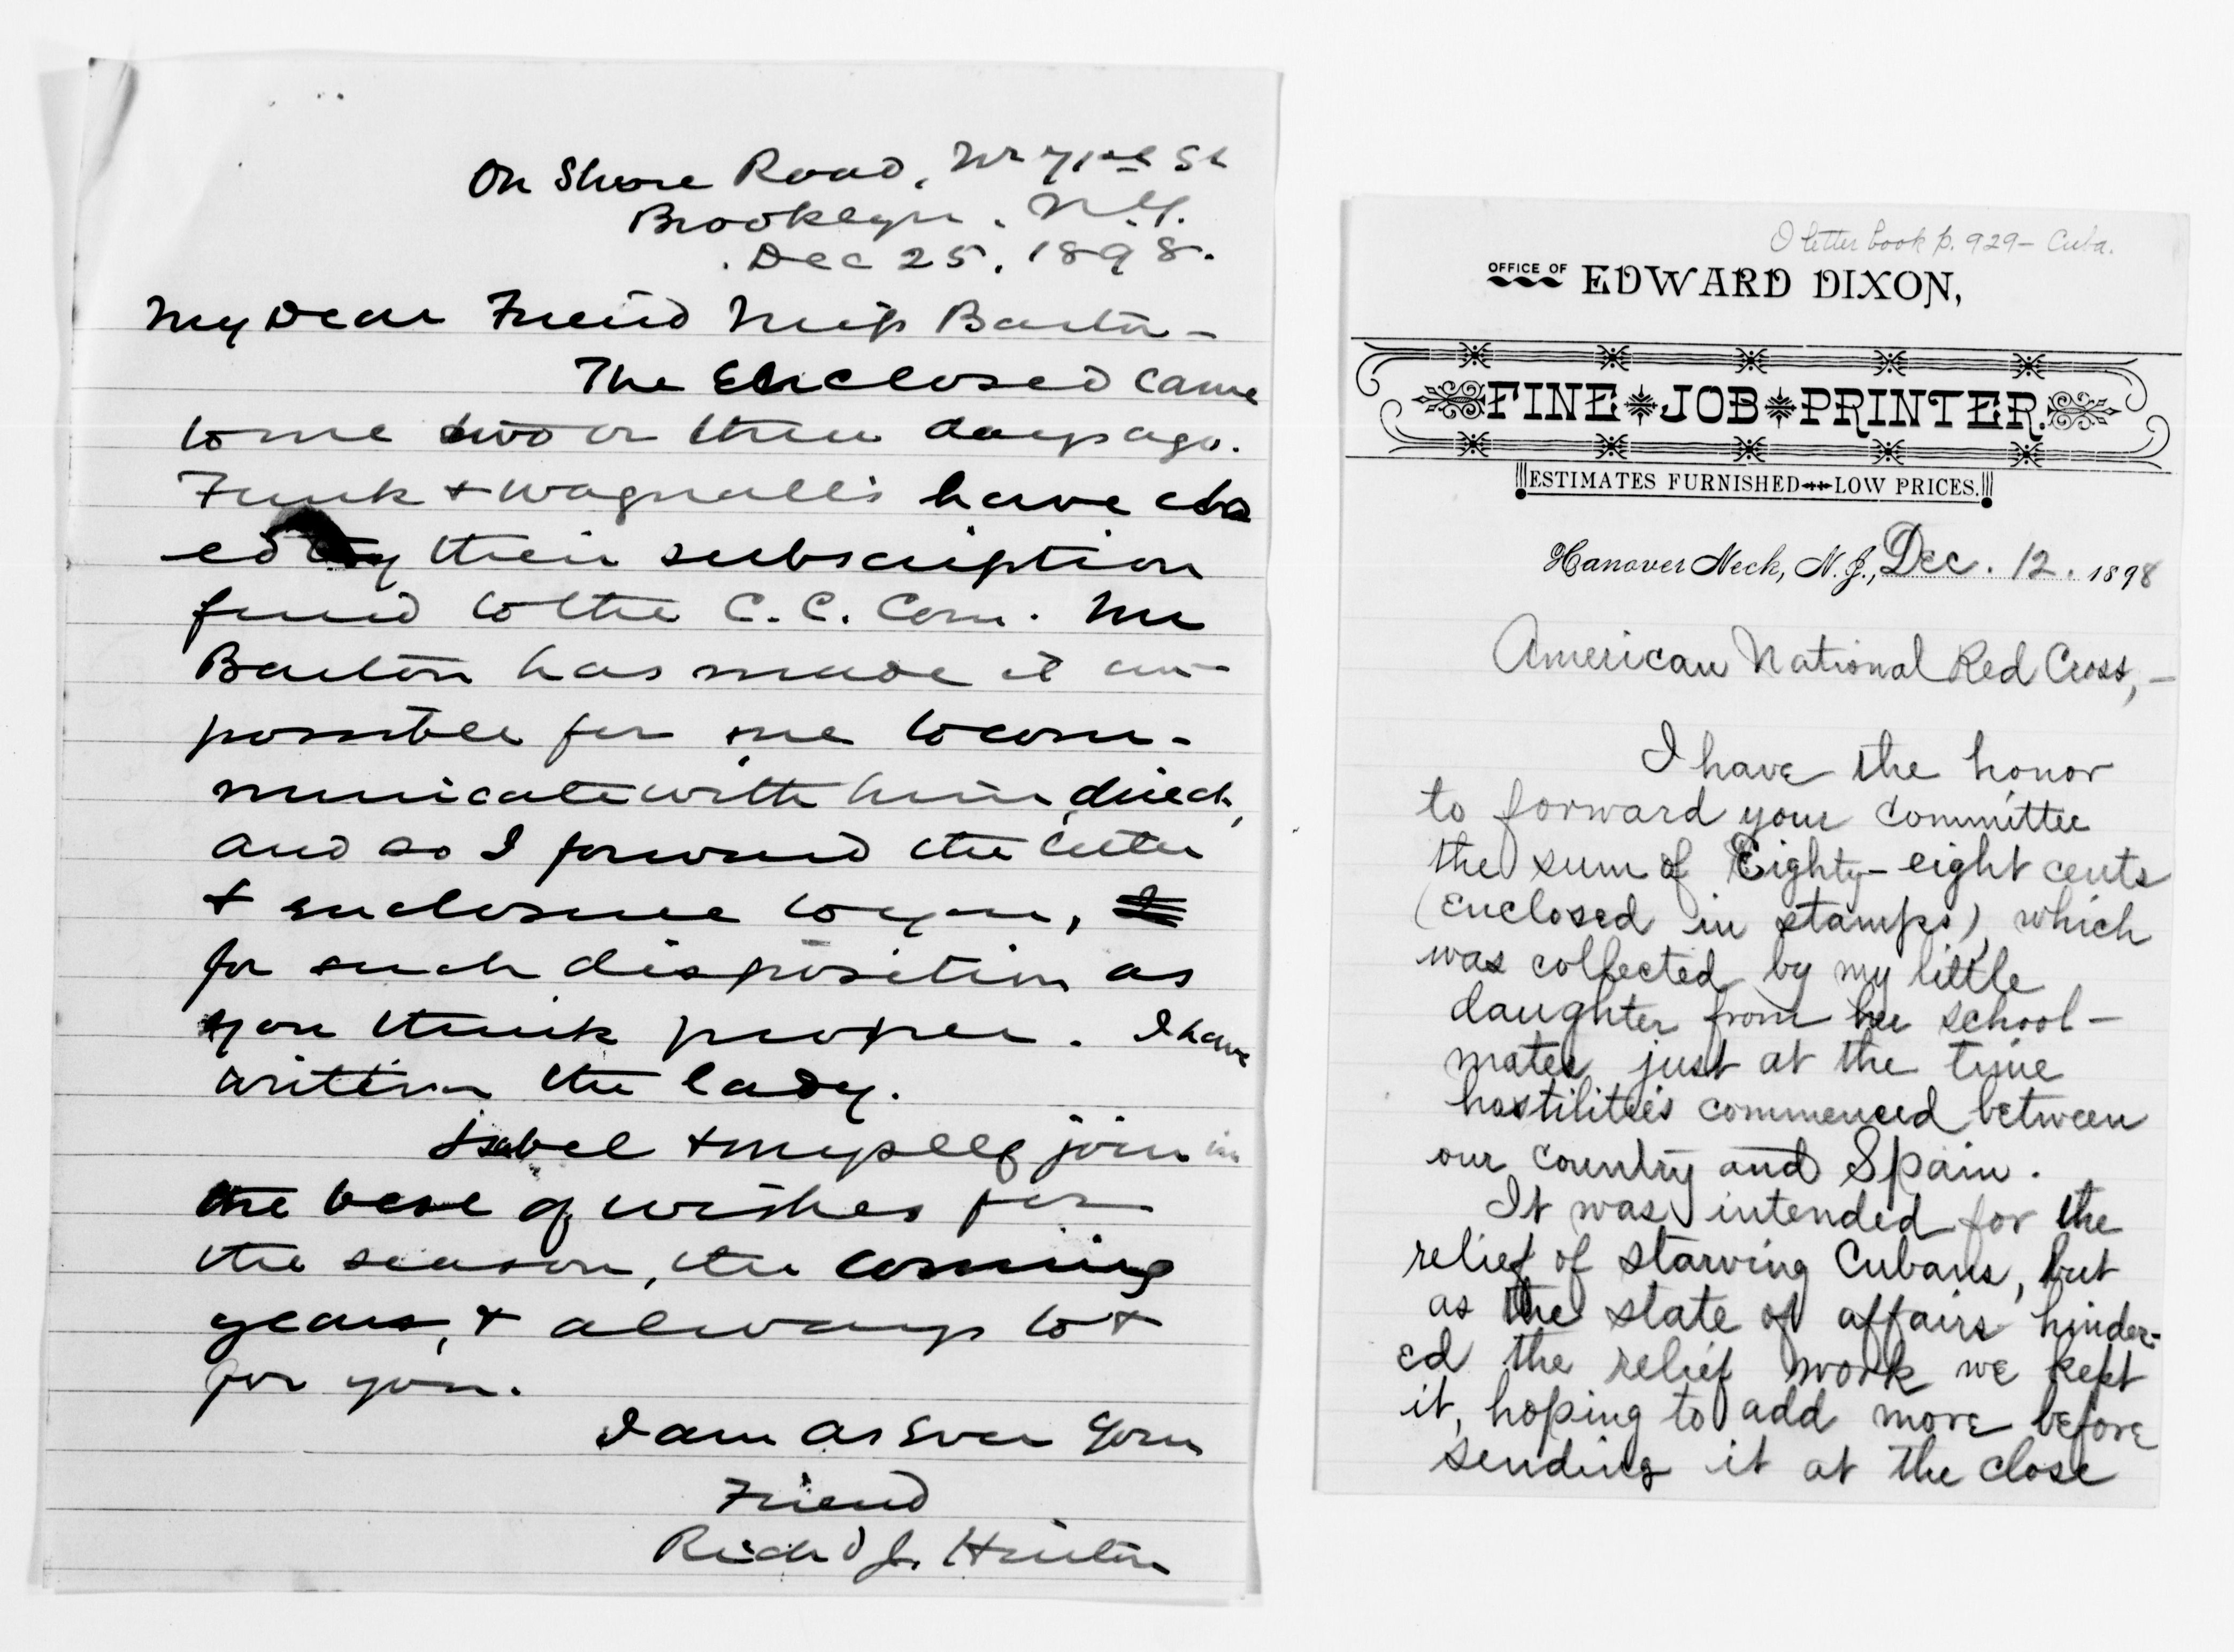 On Shore Road, Nr 71st St
Brooklyn. N.Y.
Dec 25. 1898.
My Dear Friend Miss Barton -
The Enclosed came
to me two or three days ago.
Funk & Wagnalls have
ed their subscription
fund to the C.C. Com. Mr
Barton has made it im-
possible for me to com-
municate with him, direct,
and so I forward the letter
& enclosure to you,
for such disposition as
you think proper. I have
written the lady.
Isabel & myself join in
the best of wishes for
the season, the coming
years, & always to &
for you.
I am as Ever Your
Friend
Richd J. Hinton
O letter book p. 929 - Cuba.
OFFICE OF EDWARD DIXON,
FINE JOB PRINTER.
ESTIMATES FURNISHED LOW PRICES.
Hanover Neck, N. J., Dec. 12. 1898
American National Red Cross, -
I have the honor
to forward your committee
the sum of Eighty-eight cents
(enclosed in stamps), which
was collected by my little
daughter from her school-
mates just at the time
hostilities commenced between
our country and Spain.
It was intended for the
relief of starving Cubans, but
as the state of affairs hinder-
ed the relief work we kept
it, hoping to add more before
sending it at the close